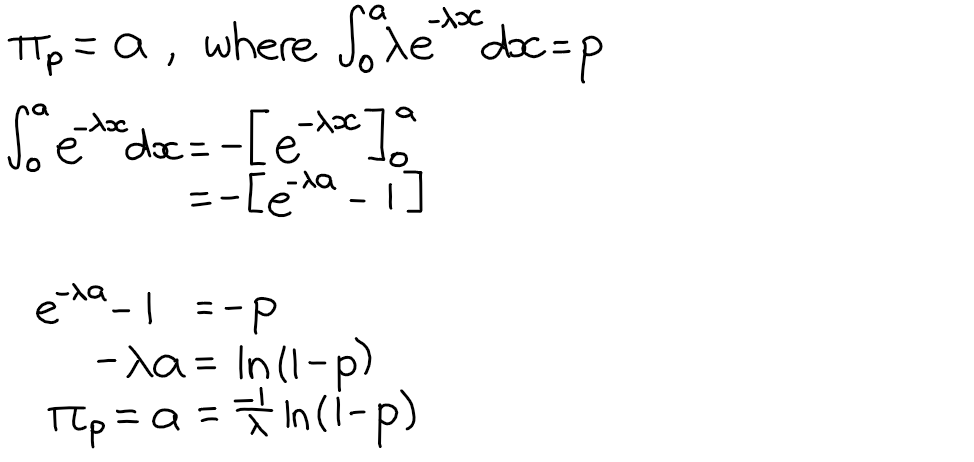 π_p = a , where ∫₀ᵃ λe^{-λx} dx = p
∫₀ᵃ e^{-λx} dx = -[e^{-λx}]₀ᵃ
= -[e^{-λa} - 1]
e^{-λa} - 1 = -p
-λa = ln(1-p)
π_p = a = \frac{-1}{λ} ln(1-p)